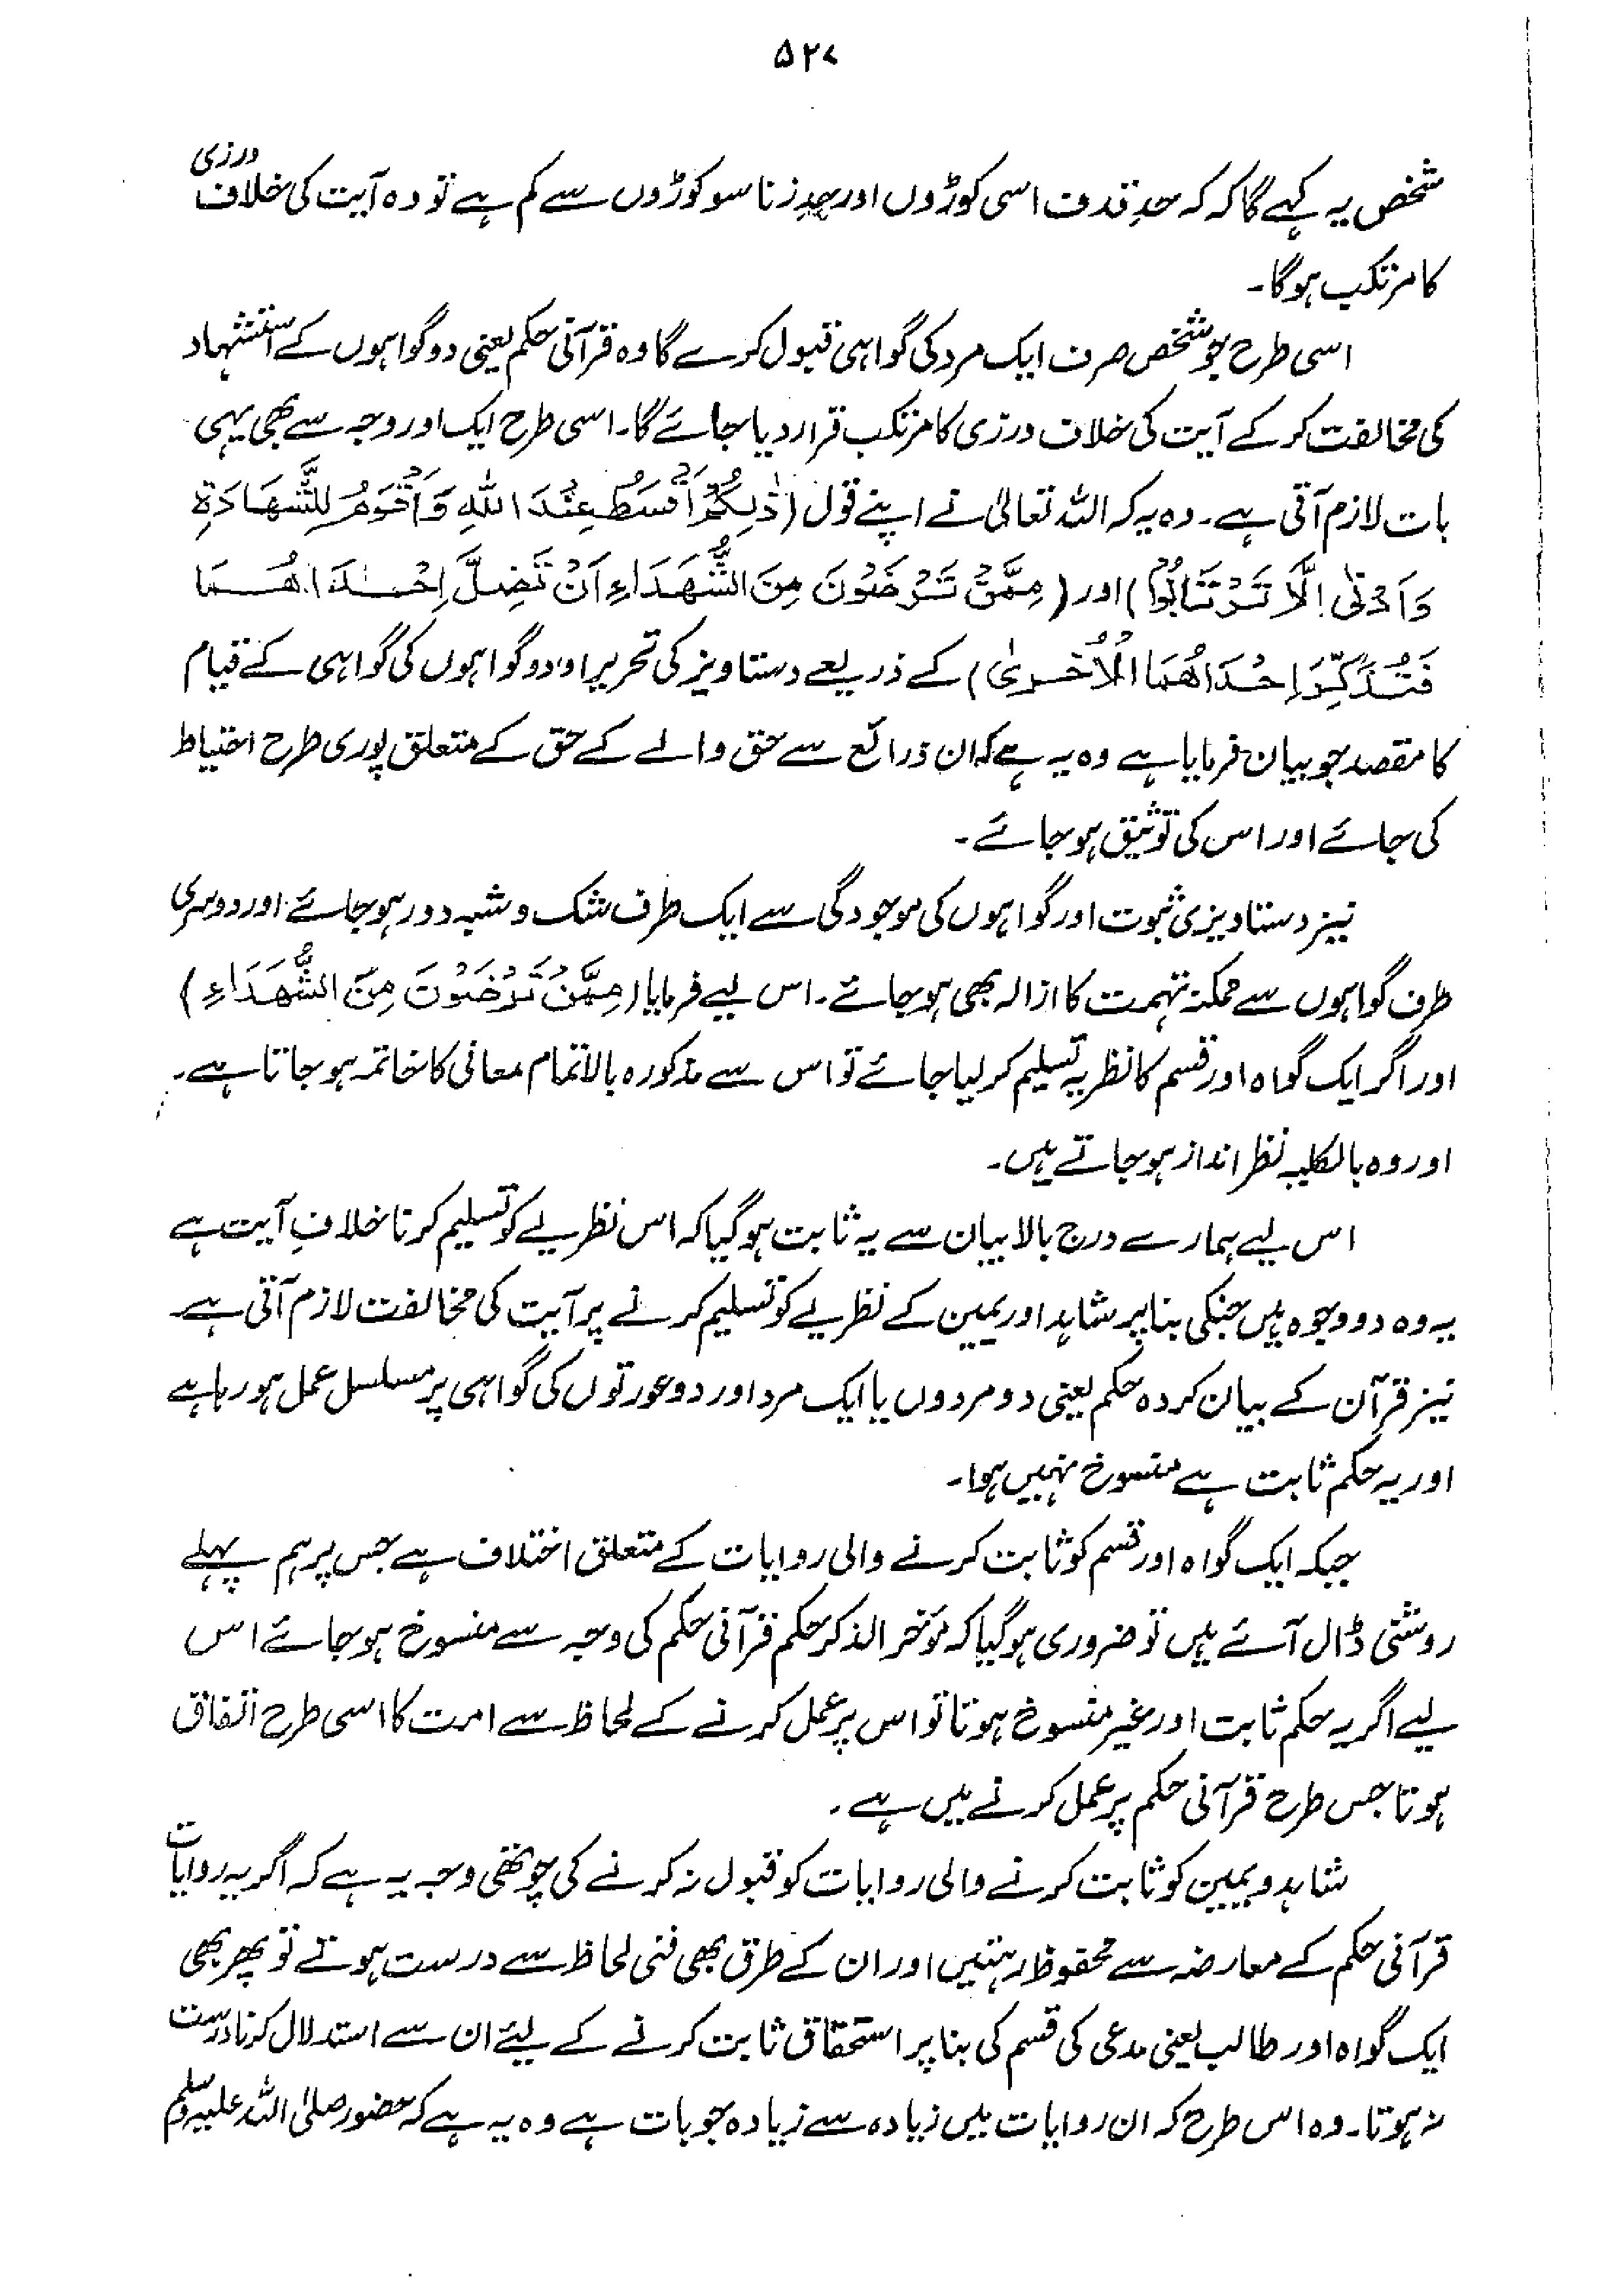 ۵۲۷
شخص یہ کہے گا کہ کہ حدِ قذف اسی کوڑوں اور حدِ زنا سو کوڑوں سے کم ہے تو وہ آیت کی خلاف ورزی
کا مرتکب ہوگا۔
اسی طرح جو شخص صرف ایک مرد کی گواہی قبول کرے گا وہ قرآنی حکم یعنی دو گواہوں کے استشہاد
کی مخالفت کر کے آیت کی خلاف ورزی کا مرتکب قرار دیا جائے گا۔ اسی طرح ایک اور وجہ سے بھی یہی
بات لازم آتی ہے۔ وہ یہ کہ اللہ تعالیٰ نے اپنے قول (ذٰلِكُمْ اَقْسَطُ عِنْدَ اللّٰهِ وَاَقْوَمُ لِلشَّهَادَةِ
وَاَدْنٰى اِلَّا تَرْتَابُوْا) اور (مِمَّنْ تَرْضَوْنَ مِنَ الشُّهَدَاءِ اَنْ تَضِلَّ اِحْدَاهُمَا
فَتُذَكِّرَ اِحْدَاهُمَا الْاُخْرىٰ) کے ذریعے دستاویز کی تحریر اور دو گواہوں کی گواہی کے قیام
کا مقصد جو بیان فرمایا ہے وہ یہ ہے کہ ان ذرائع سے حق والے کے حق کے متعلق پوری طرح احتیاط
کی جائے اور اس کی توثیق ہو جائے۔
نیز دستاویزی ثبوت اور گواہوں کی موجودگی سے ایک طرف شک و شبہ دور ہو جائے اور دوسری
طرف گواہوں سے ممکنہ تہمت کا ازالہ بھی ہو جائے۔ اس لیے فرمایا (مِمَّنْ تَرْضَوْنَ مِنَ الشُّهَدَاءِ)
اور اگر ایک گواہ اور قسم کا نظریہ تسلیم کر لیا جائے تو اس سے مذکورہ بالا تمام معانی کا خاتمہ ہو جاتا ہے۔
اور وہ بالکلیہ نظر انداز ہو جاتے ہیں۔
اس لیے ہمارے درج بالا بیان سے یہ ثابت ہو گیا کہ اس نظریے کو تسلیم کرنا خلافِ آیت ہے
یہ وہ دو وجوہ ہیں جنکی بنا پر شاہد اور یمین کے نظریے کو تسلیم کرنے پر آیت کی مخالفت لازم آتی ہے۔
نیز قرآن کے بیان کردہ حکم یعنی دو مردوں یا ایک مرد اور دو عورتوں کی گواہی پر مسلسل عمل ہو رہا ہے
اور یہ حکم ثابت ہے منسوخ نہیں ہوا۔
جبکہ ایک گواہ اور قسم کو ثابت کرنے والی روایات کے متعلق اختلاف ہے جس پر ہم پہلے
روشنی ڈال آئے ہیں تو ضروری ہو گیا کہ مؤخر الذکر حکم قرآنی حکم کی وجہ سے منسوخ ہو جائے اس
لیے اگر یہ حکم ثابت اور غیر منسوخ ہوتا تو اس پر عمل کرنے کے لحاظ سے امت کا اسی طرح اتفاق
ہوتا جس طرح قرآنی حکم پر عمل کرنے میں ہے۔
شاہد و یمین کو ثابت کرنے والی روایات کو قبول نہ کرنے کی چوتھی وجہ یہ ہے کہ اگر یہ روایات
قرآنی حکم کے معارضہ سے محفوظ رہتیں اور ان کے طرق بھی فنی لحاظ سے درست ہوتے تو پھر بھی
ایک گواہ اور طالب یعنی مدعی کی قسم کی بنا پر استحقاق ثابت کرنے کے لیئے ان سے استدلال کرنا درست
نہ ہوتا۔ وہ اس طرح کہ ان روایات میں زیادہ سے زیادہ جو بات ہے وہ یہ ہے کہ حضور صلی اللہ علیہ وسلم